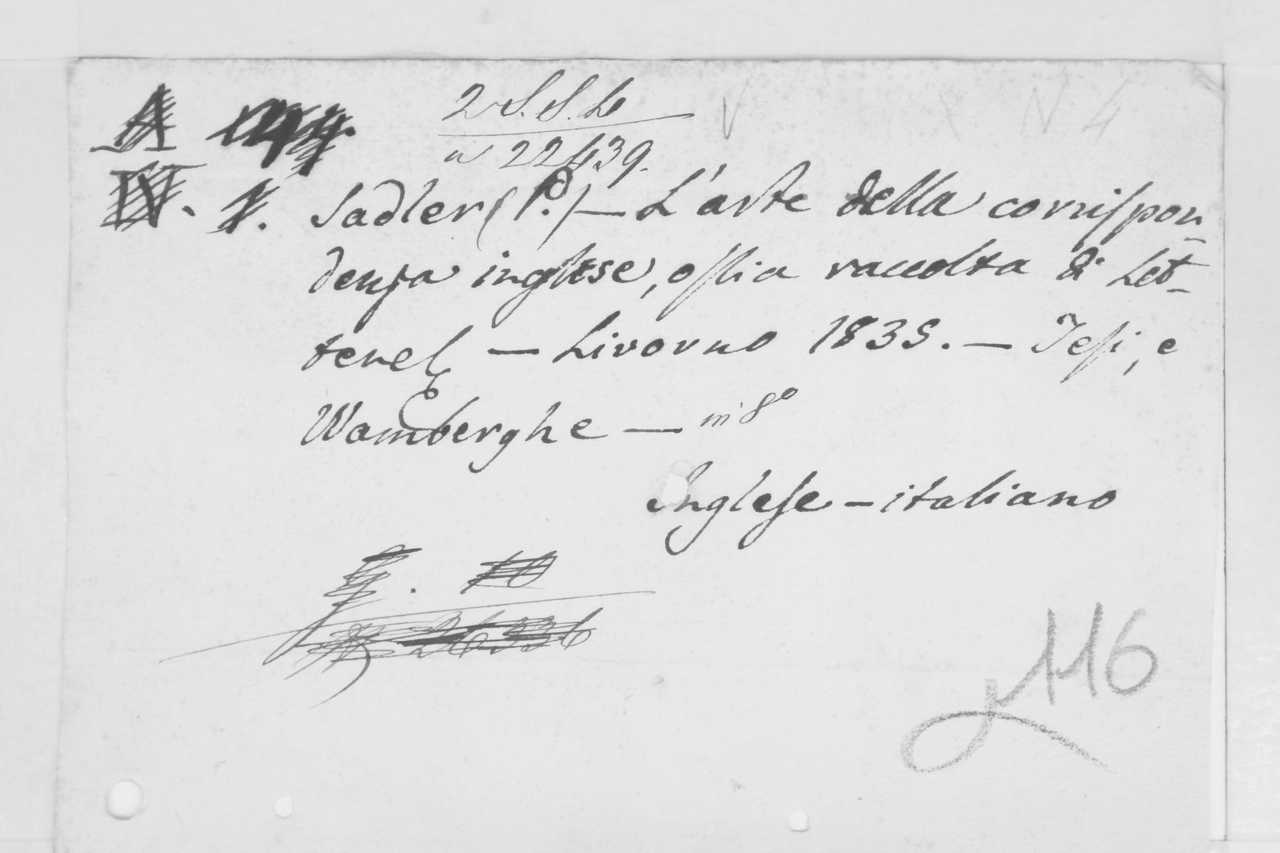 2 S. S. 6
n 22439.
Sadler (P.) — L'arte della corrispon-
denza inglese, ossia raccolta di Let-
tere — Livorno 1835. — Tesi, e
Wamberghe — in 8º
Inglese – italiano
26336
116